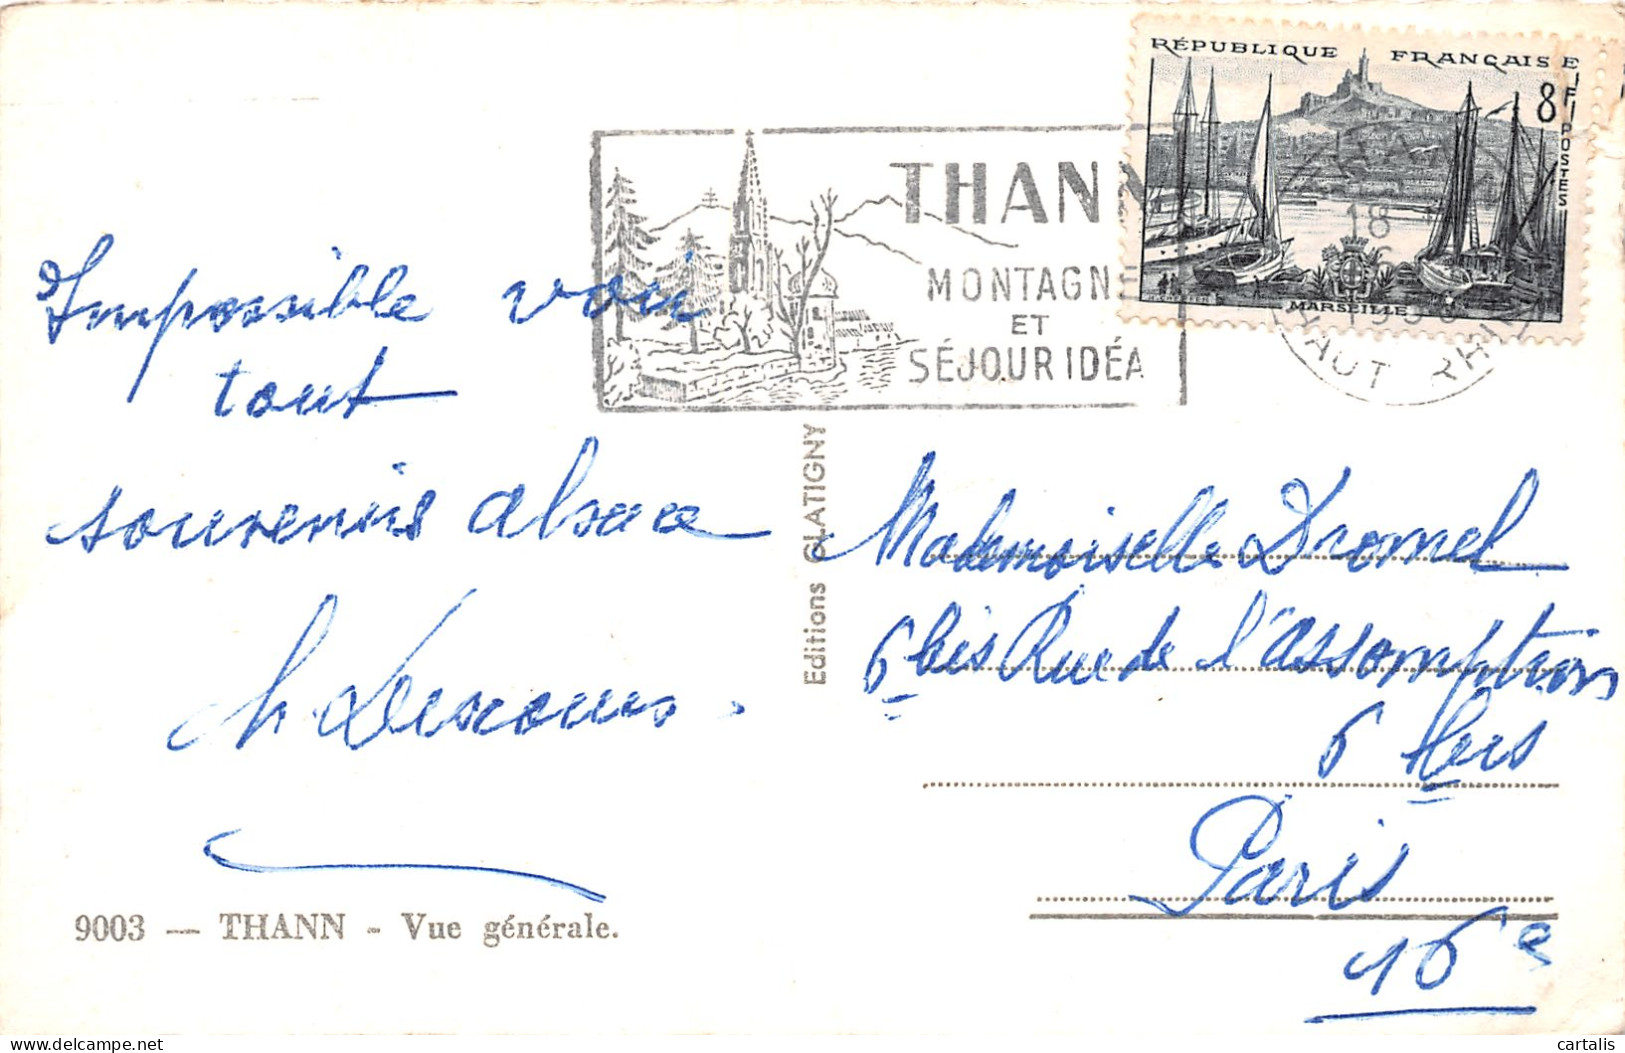 RÉPUBLIQUE FRANÇAISE
8F
POSTES
MARSEILLE
THANN
MONTAGNE
ET
SÉJOUR IDÉA
18
HAUT RHIN
Impossible voir
tout
souvenirs alsace
Editions GLATIGNY
Mademoiselle Dromel
6 bis Rue de l'assomption
6
Paris
16e
9003 — THANN - Vue générale.
cartalis